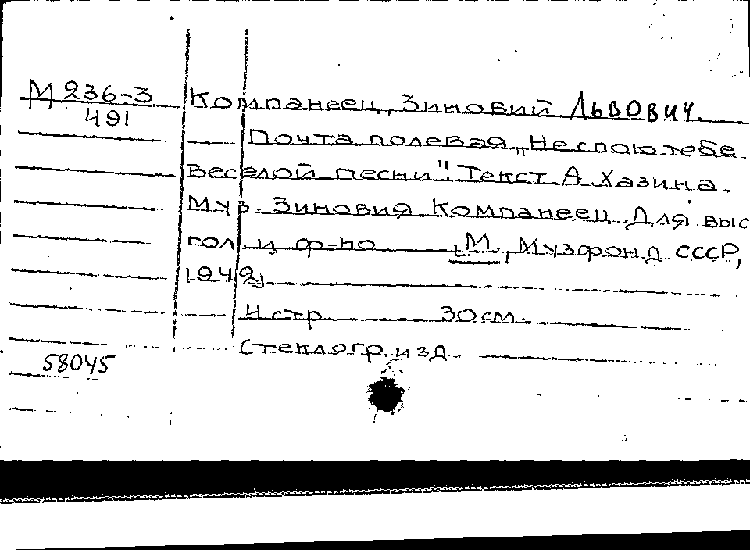 М 236-3
491
Компанеец, Зиновий Львович.
Почта полевая "Не спою тебе
веселой песни". Текст А Хазина.
Муз. Зиновия Компанеец. Для выс
гол. и ф-по М., Музфонд СССР,
1942
4 стр. 30 см.
Стеклогр. изд.
58045